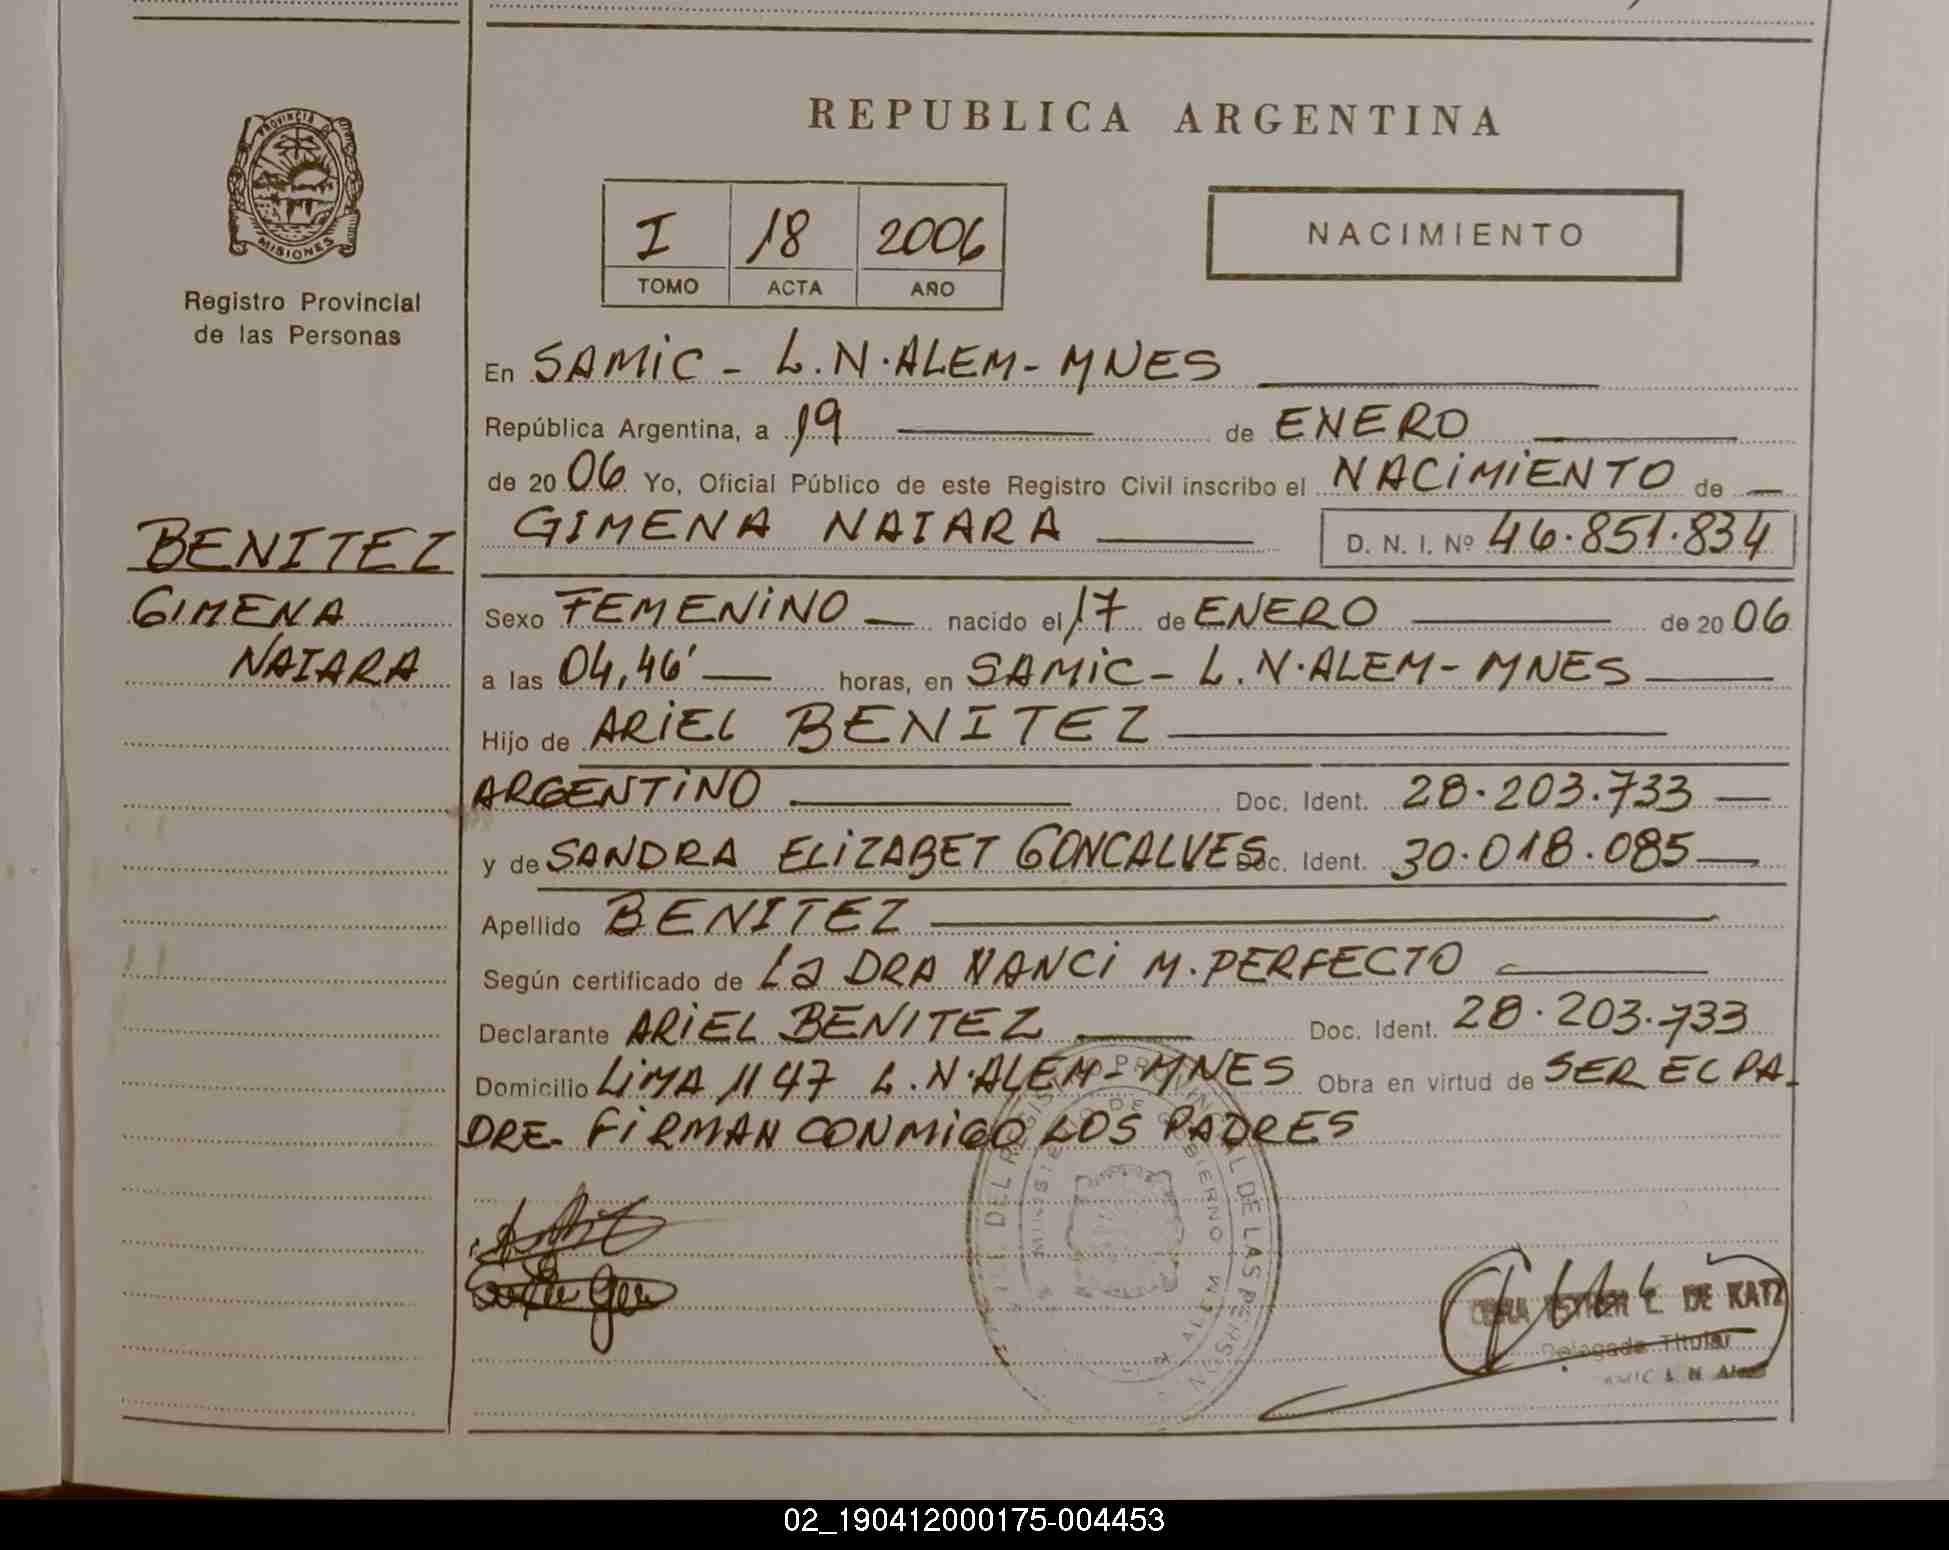 REPUBLICA ARGENTINA
PROVINCIA D
MISIONES
Registro Provincial
de las Personas
I 18 2006
TOMO ACTA AÑO
NACIMIENTO
En SAMIC - L.N.ALEM - MNES
República Argentina, a 19 de ENERO
de 20 06 Yo, Oficial Público de este Registro Civil inscribo el NACIMIENTO de
GIMENA NAIARA D. N. I. Nº 46.851.834
BENITEZ
GIMENA
NAIARA
Sexo FEMENINO nacido el 17 de ENERO de 20 06
a las 04,46' horas, en SAMIC - L.N.ALEM - MNES
Hijo de ARIEL BENITEZ
ARGENTINO Doc. Ident. 28.203.733
y de SANDRA ELIZABET GONCALVES Doc. Ident. 30.018.085
Apellido BENITEZ
Según certificado de La DRA NANCI M. PERFECTO
Declarante ARIEL BENITEZ Doc. Ident. 28.203.733
Domicilio LIMA 1147 L.N.ALEM - MNES Obra en virtud de SER EL PA-
DRE. FIRMAN CONMIGO LOS PADRES
DEL REGISTRO PROVINCIAL DE LAS PERSON
MINISTERIO DE GOBIERNO
ESTHER L. DE KATZ
Delegada Titular
L. N. Alem
02_190412000175-004453